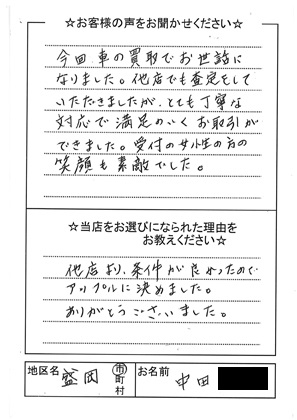 ☆お客様の声をお聞かせください☆
今回、車の買取でお世話に
なりました。他店でも査定をして
いただきましたが、とても丁寧な
対応で満足のいくお取引が
できました。受付の女性の方の
笑顔も素敵でした。
☆当店をお選びになられた理由を
お教えください☆
他店より、条件が良かったので
アップルに決めました。
ありがとうございました。
地区名 盛岡 市町村 お名前 中田